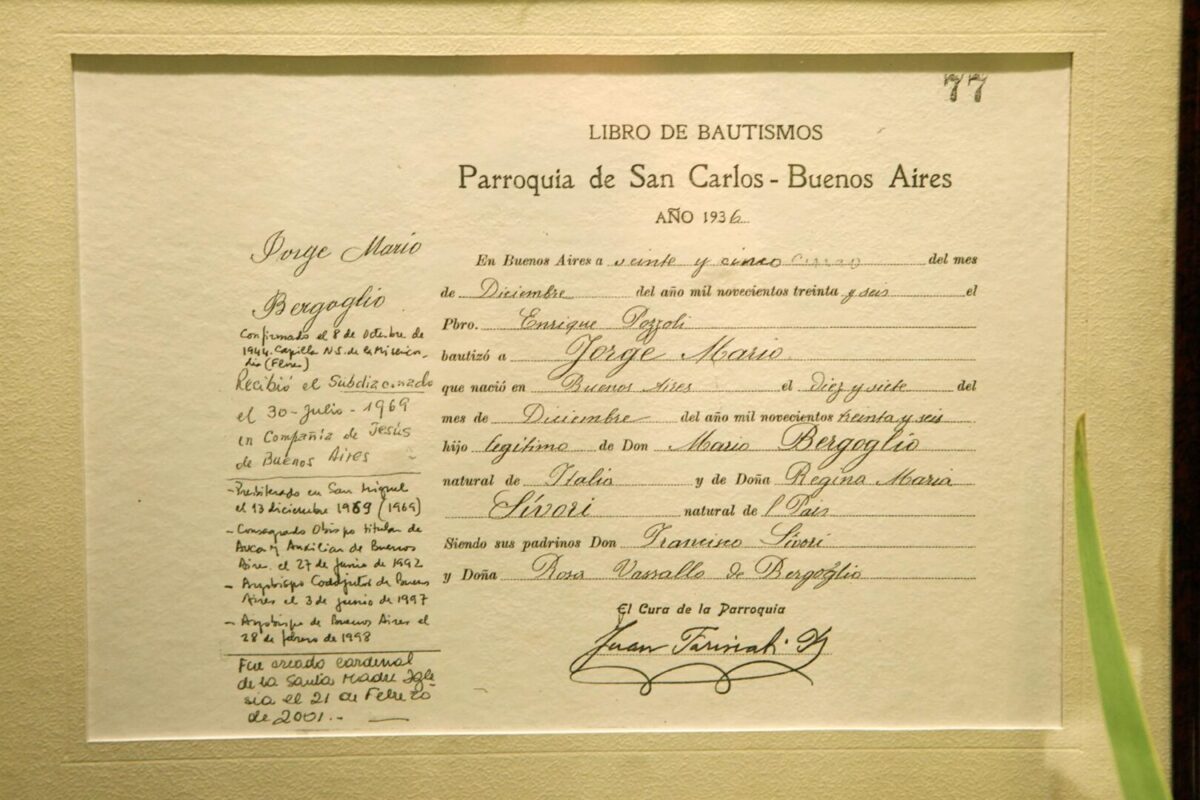 77
LIBRO DE BAUTISMOS
Parroquia de San Carlos - Buenos Aires
AÑO 1936
Jorge Mario
Bergoglio
Confirmado el 8 de Octubre de
1944. Capilla N.S. de la Misericor-
dia (Flores)
Recibió el Subdiaconado
el 30 - Julio - 1969
en Compañía de Jesús
de Buenos Aires
- Presbiterado en San Miguel
el 13 diciembre 1969 (1969)
- Consagrado Obispo titular de
Auca y Auxiliar de Buenos
Aires el 27 de junio de 1992
- Arzobispo Coadjutor de Buenos
Aires el 3 de junio de 1997
- Arzobispo de Buenos Aires el
28 de febrero de 1998
Fue creado cardenal
de la Santa Madre Igle
sia el 21 de Febrero
de 2001.-
En Buenos Aires a veinte y cinco del mes
de Diciembre del año mil novecientos treinta y seis el
Pbro. Enrique Pozzoli
bautizó a Jorge Mario
que nació en Buenos Aires el diez y siete del
mes de Diciembre del año mil novecientos treinta y seis
hijo legítimo de Don Mario Bergoglio
natural de Italia y de Doña Regina Maria
Sívori natural de l Pais
Siendo sus padrinos Don Francisco Sívori
y Doña Rosa Vassallo de Bergoglio
El Cura de la Parroquia
Juan